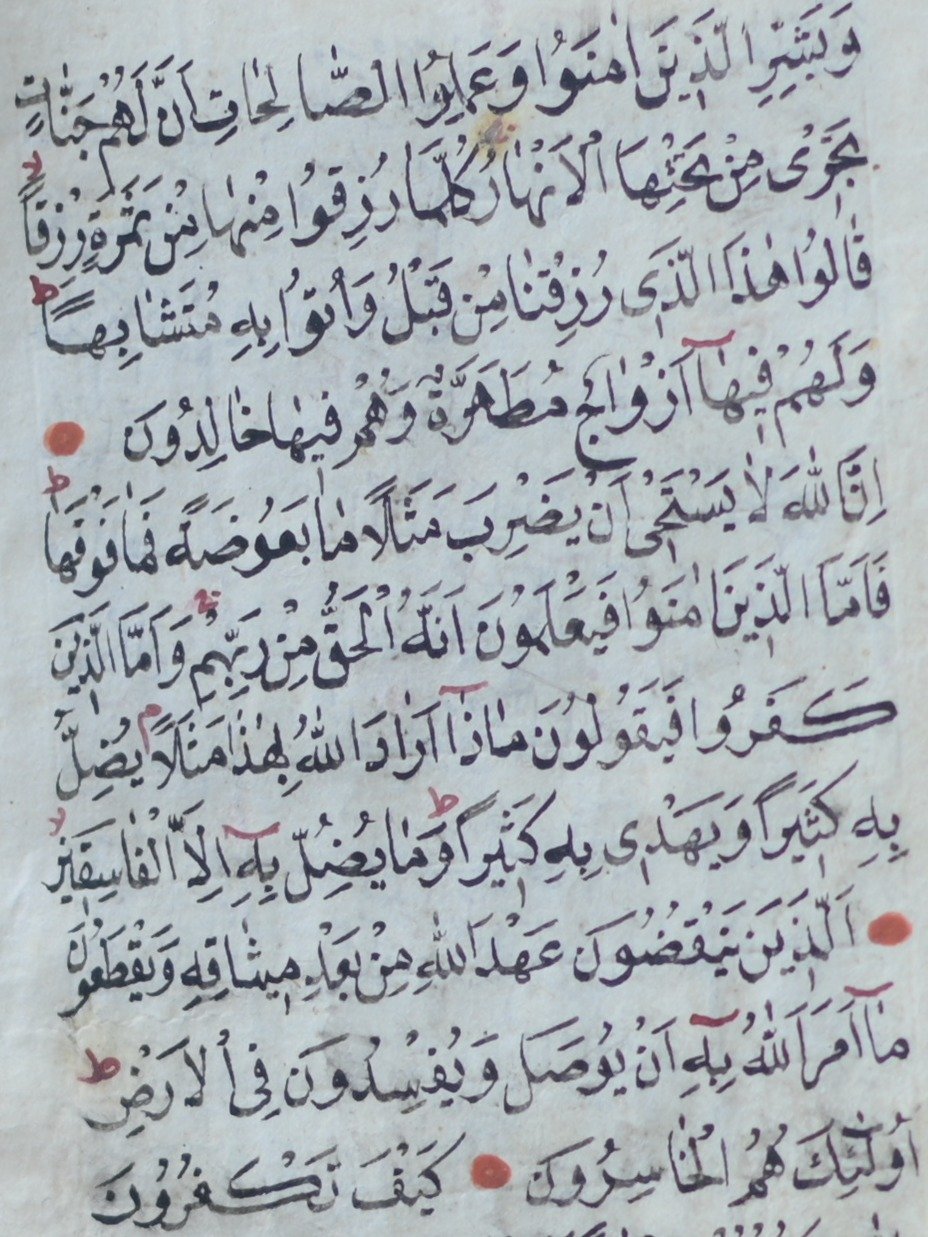 وَبَشِّرِ الَّذِينَ اٰمَنُوا وَعَمِلُوا الصَّالِحَاتِ اَنَّ لَهُمْ جَنَّاتٍ
تَجْرٰى مِنْ تَحْتِهَا الْاَنْهَارُ كُلَّمَا رُزِقُوا مِنْهَا مِنْ ثَمَرَةٍ رِزْقًا
قَالُوا هٰذَا الَّذٖى رُزِقْنَا مِنْ قَبْلُ وَاُتُوا بِهٖ مُتَشَابِهًا
وَلَهُمْ فٖيهَا اَزْوَاجٌ مُطَهَّرَةٌ وَهُمْ فٖيهَا خَالِدُونَ
اِنَّ اللّٰهَ لَا يَسْتَحْيٖ اَنْ يَضْرِبَ مَثَلًا مَا بَعُوضَةً فَمَا فَوْقَهَا
فَاَمَّا الَّذٖينَ اٰمَنُوا فَيَعْلَمُونَ اَنَّهُ الْحَقُّ مِنْ رَبِّهِمْ وَاَمَّا الَّذٖينَ
كَفَرُوا فَيَقُولُونَ مَاذَا اَرَادَ اللّٰهُ بِهٰذَا مَثَلًا يُضِلُّ
بِهٖ كَثٖيرًا وَيَهْدٖى بِهٖ كَثٖيرًا وَمَا يُضِلُّ بِهٖ اِلَّا الْفَاسِقٖينَ
اَلَّذٖينَ يَنْقُضُونَ عَهْدَ اللّٰهِ مِنْ بَعْدِ مٖيثَاقِهٖ وَيَقْطَعُونَ
مَا اَمَرَ اللّٰهُ بِهٖ اَنْ يُوصَلَ وَيُفْسِدُونَ فِى الْاَرْضِ
اُولٰئِكَ هُمُ الْخَاسِرُونَ كَيْفَ تَكْفُرُونَ